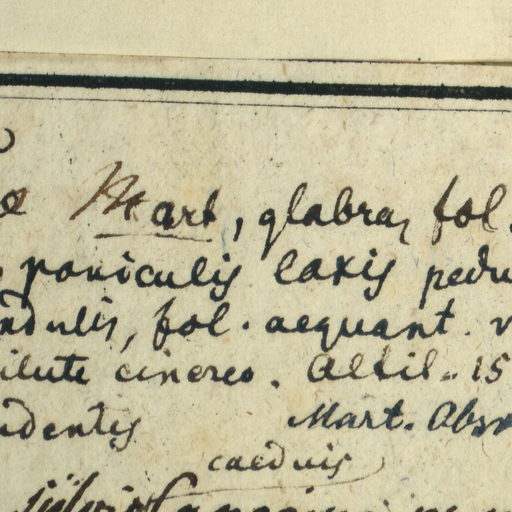 Mart, glabra, fol.
paniculis laxis pedu
ndulis, fol. aequant.
ilute cinereo. Altit. 15
identis Mart. Obs
caeduis